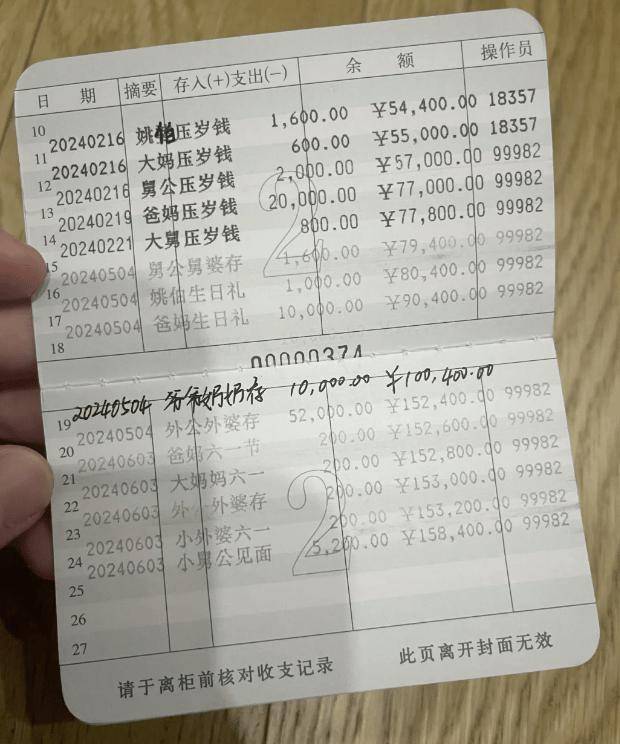 日 期 摘要 存入(+)支出(-) 余 额 操作员
10 20240216 姚伯压岁钱 1,600.00 ¥54,400.00 18357
11 20240216 大妈压岁钱 600.00 ¥55,000.00 18357
12 20240216 舅公压岁钱 2,000.00 ¥57,000.00 99982
13 20240219 爸妈压岁钱 20,000.00 ¥77,000.00 99982
14 20240221 大舅压岁钱 800.00 ¥77,800.00 99982
15 20240504 舅公舅婆存 1,600.00 ¥79,400.00 99982
16 20240504 姚伯生日礼 1,000.00 ¥80,400.00 99982
17 20240504 爸妈生日礼 10,000.00 ¥90,400.00 99982
18
2
00000374
19 20240504 爷爷奶奶存 10,000.00 ¥100,400.00
20 20240504 外公外婆存 52,000.00 ¥152,400.00 99982
21 20240603 爸妈六一节 200.00 ¥152,600.00 99982
22 20240603 大妈妈六一 200.00 ¥152,800.00 99982
23 20240603 外 外婆存 200.00 ¥153,000.00 99982
24 20240603 小外婆六一 200.00 ¥153,200.00 99982
25 20240603 小舅公见面 5,200.00 ¥158,400.00 99982
26
27
2
请于离柜前核对收支记录 此页离开封面无效